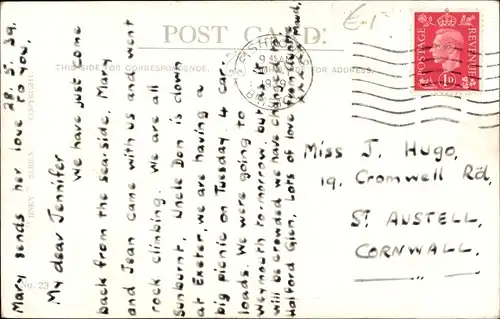 POST CARD.
THIS SIDE FOR CORRESPONDENCE.
FOR ADDRESS.
28. 5. 39.
Mary sends her love to you.
My dear Jennifer
We have just come
back from the sea-side, Mary
and Jean came with us and went
rock climbing. We are all
sunburnt. Uncle Don is down
at Exeter, we are having a
big picnic on Tuesday 4 car-
loads. We were going to
Weymouth tomorrow but as it
will be crowded we have changed to
Halford Glen. Lots of love from Auntie
Miss J. Hugo,
19. Cromwell Rd,
ST. AUSTELL,
CORNWALL.
POSTAGE
REVENUE
1D
9 45 AM
No. 23
SERIES
COPYRIGHT